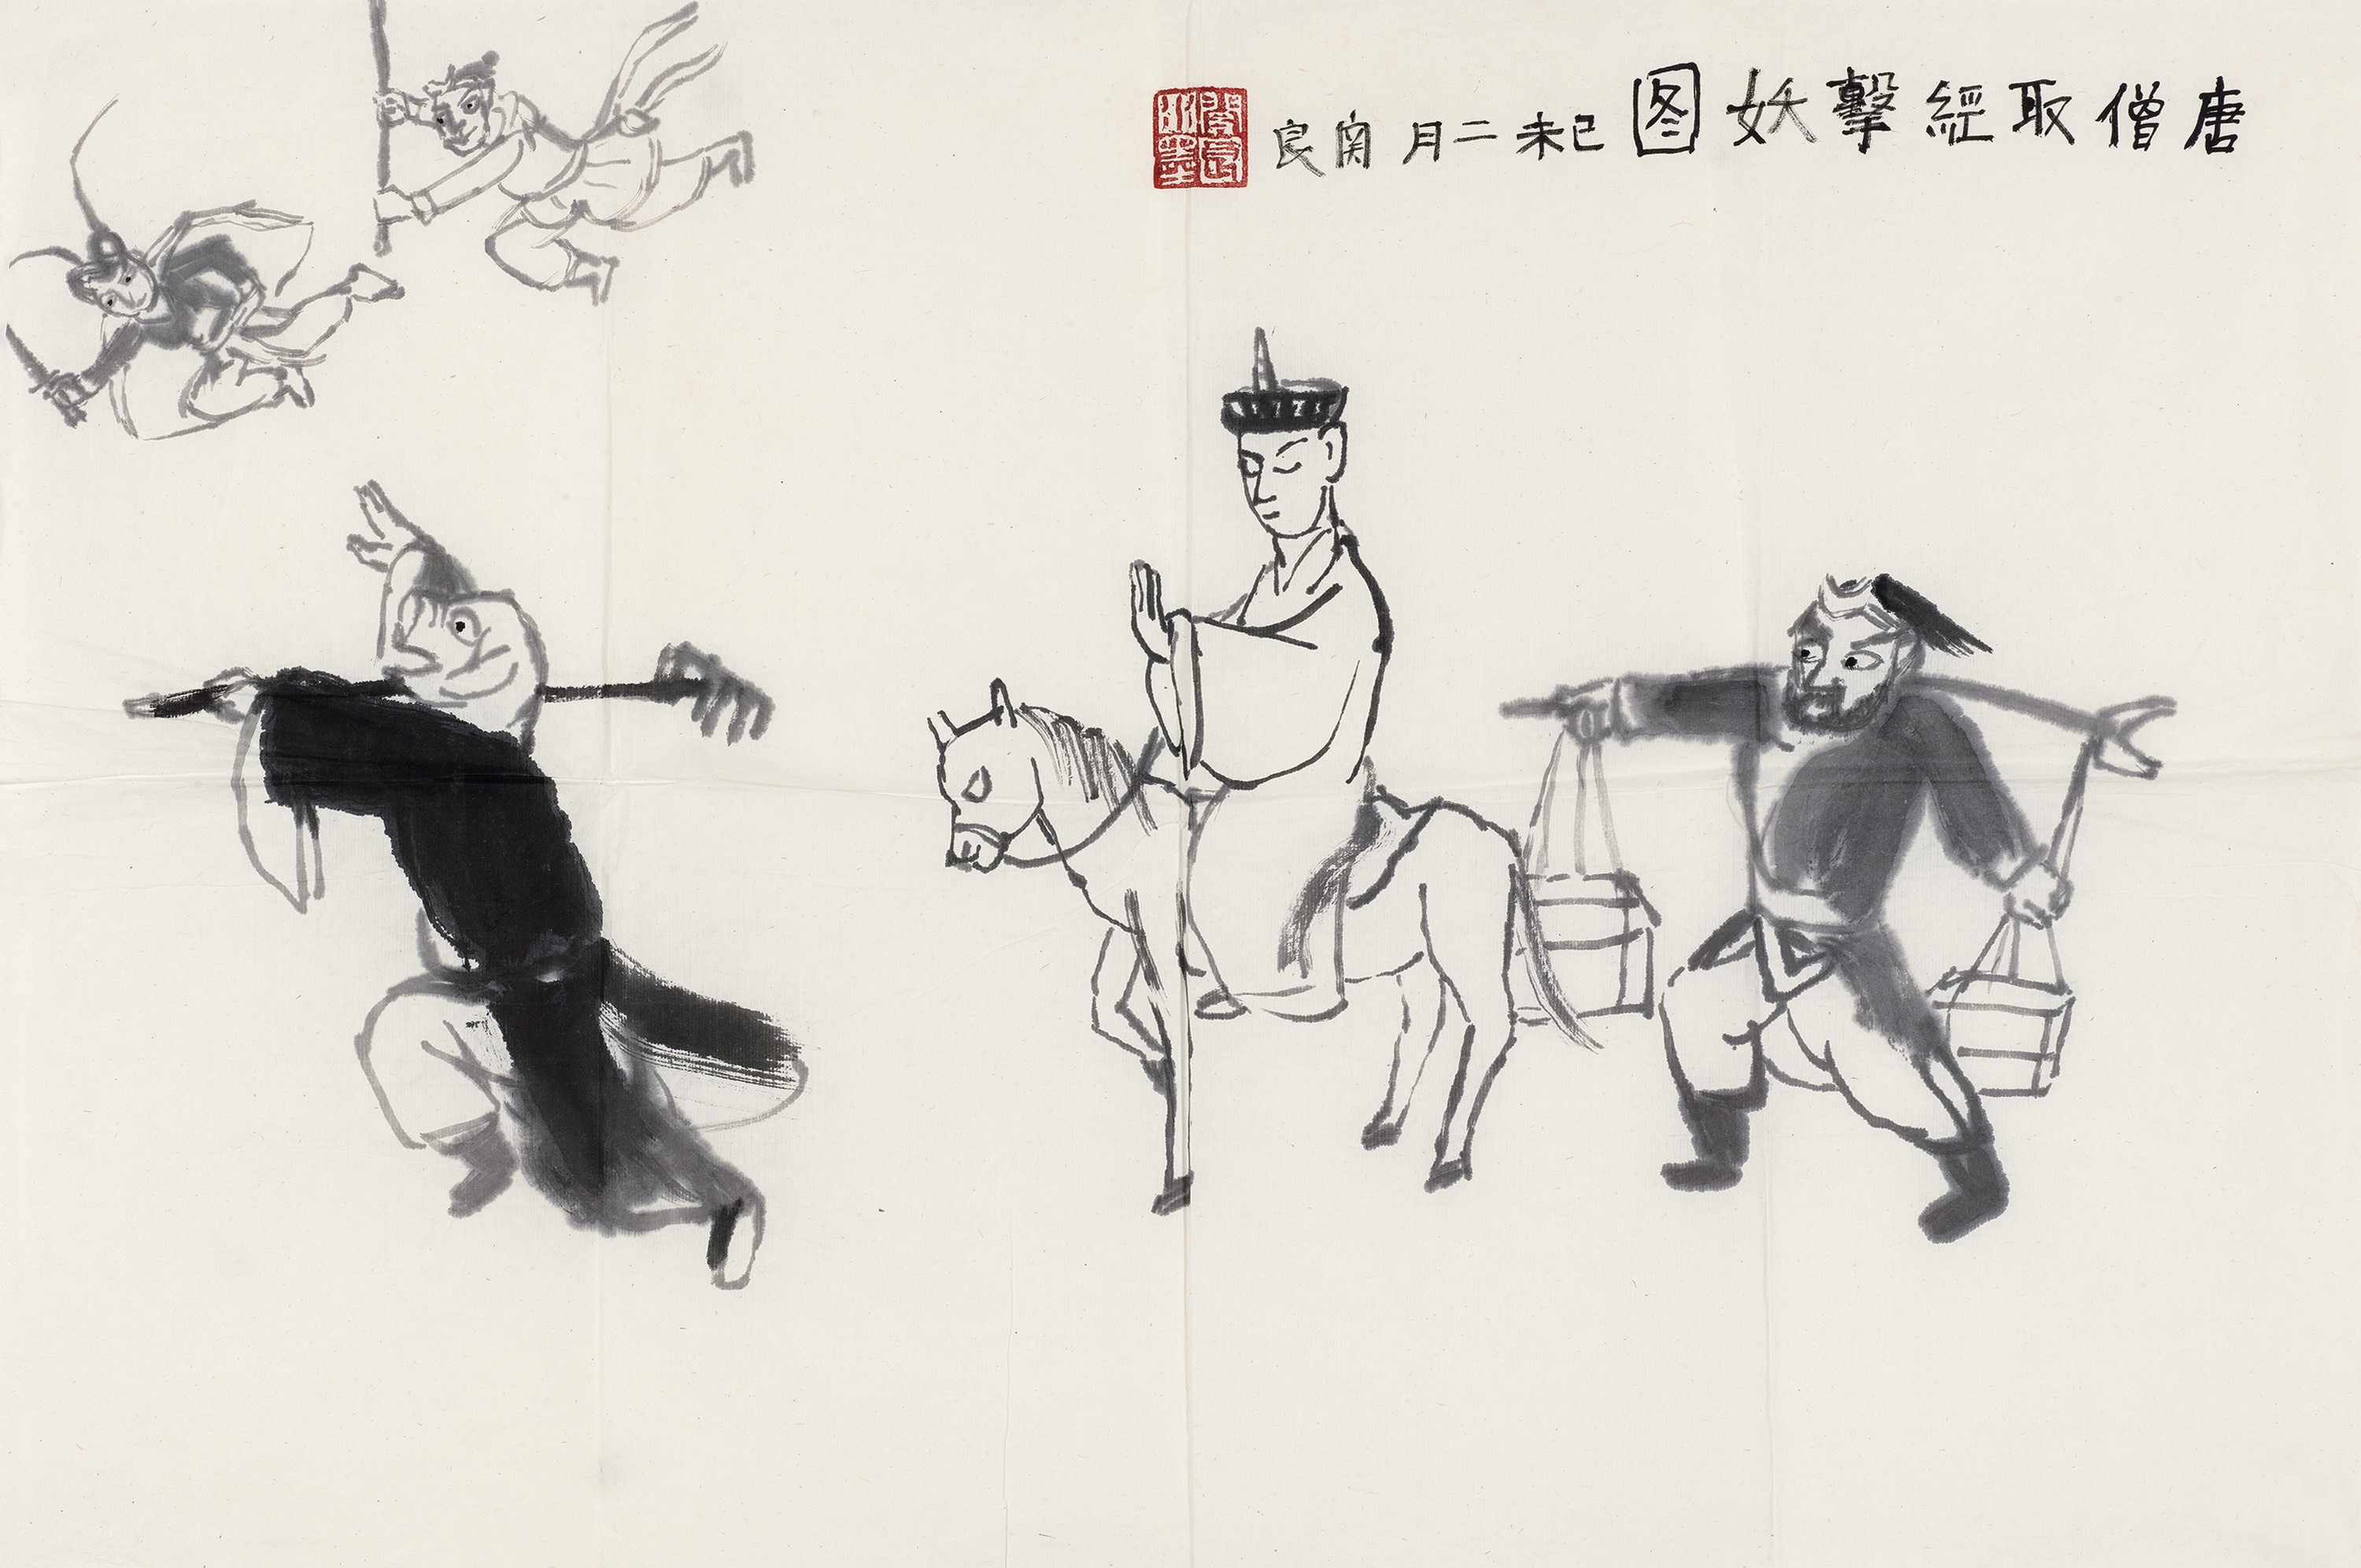 唐僧取經擊妖图 己未二月 関良
關良水墨